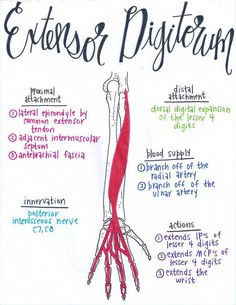 Extensor Digitorum
proximal
attachment
① lateral epicondyle by
common extensor
tendon
② adjacent intermuscular
septum
③ antebrachial fascia
distal
attachment
dorsal digital expansion
of the lesser 4
digits
blood supply
① branch off of the
radial artery
② branch off of the
ulnar artery
innervation
posterior
interosseous nerve
C7, C8
actions
① extends IP's of
lesser 4 digits
② extends MCP's of
lesser 4 digits
③ extends
the wrist